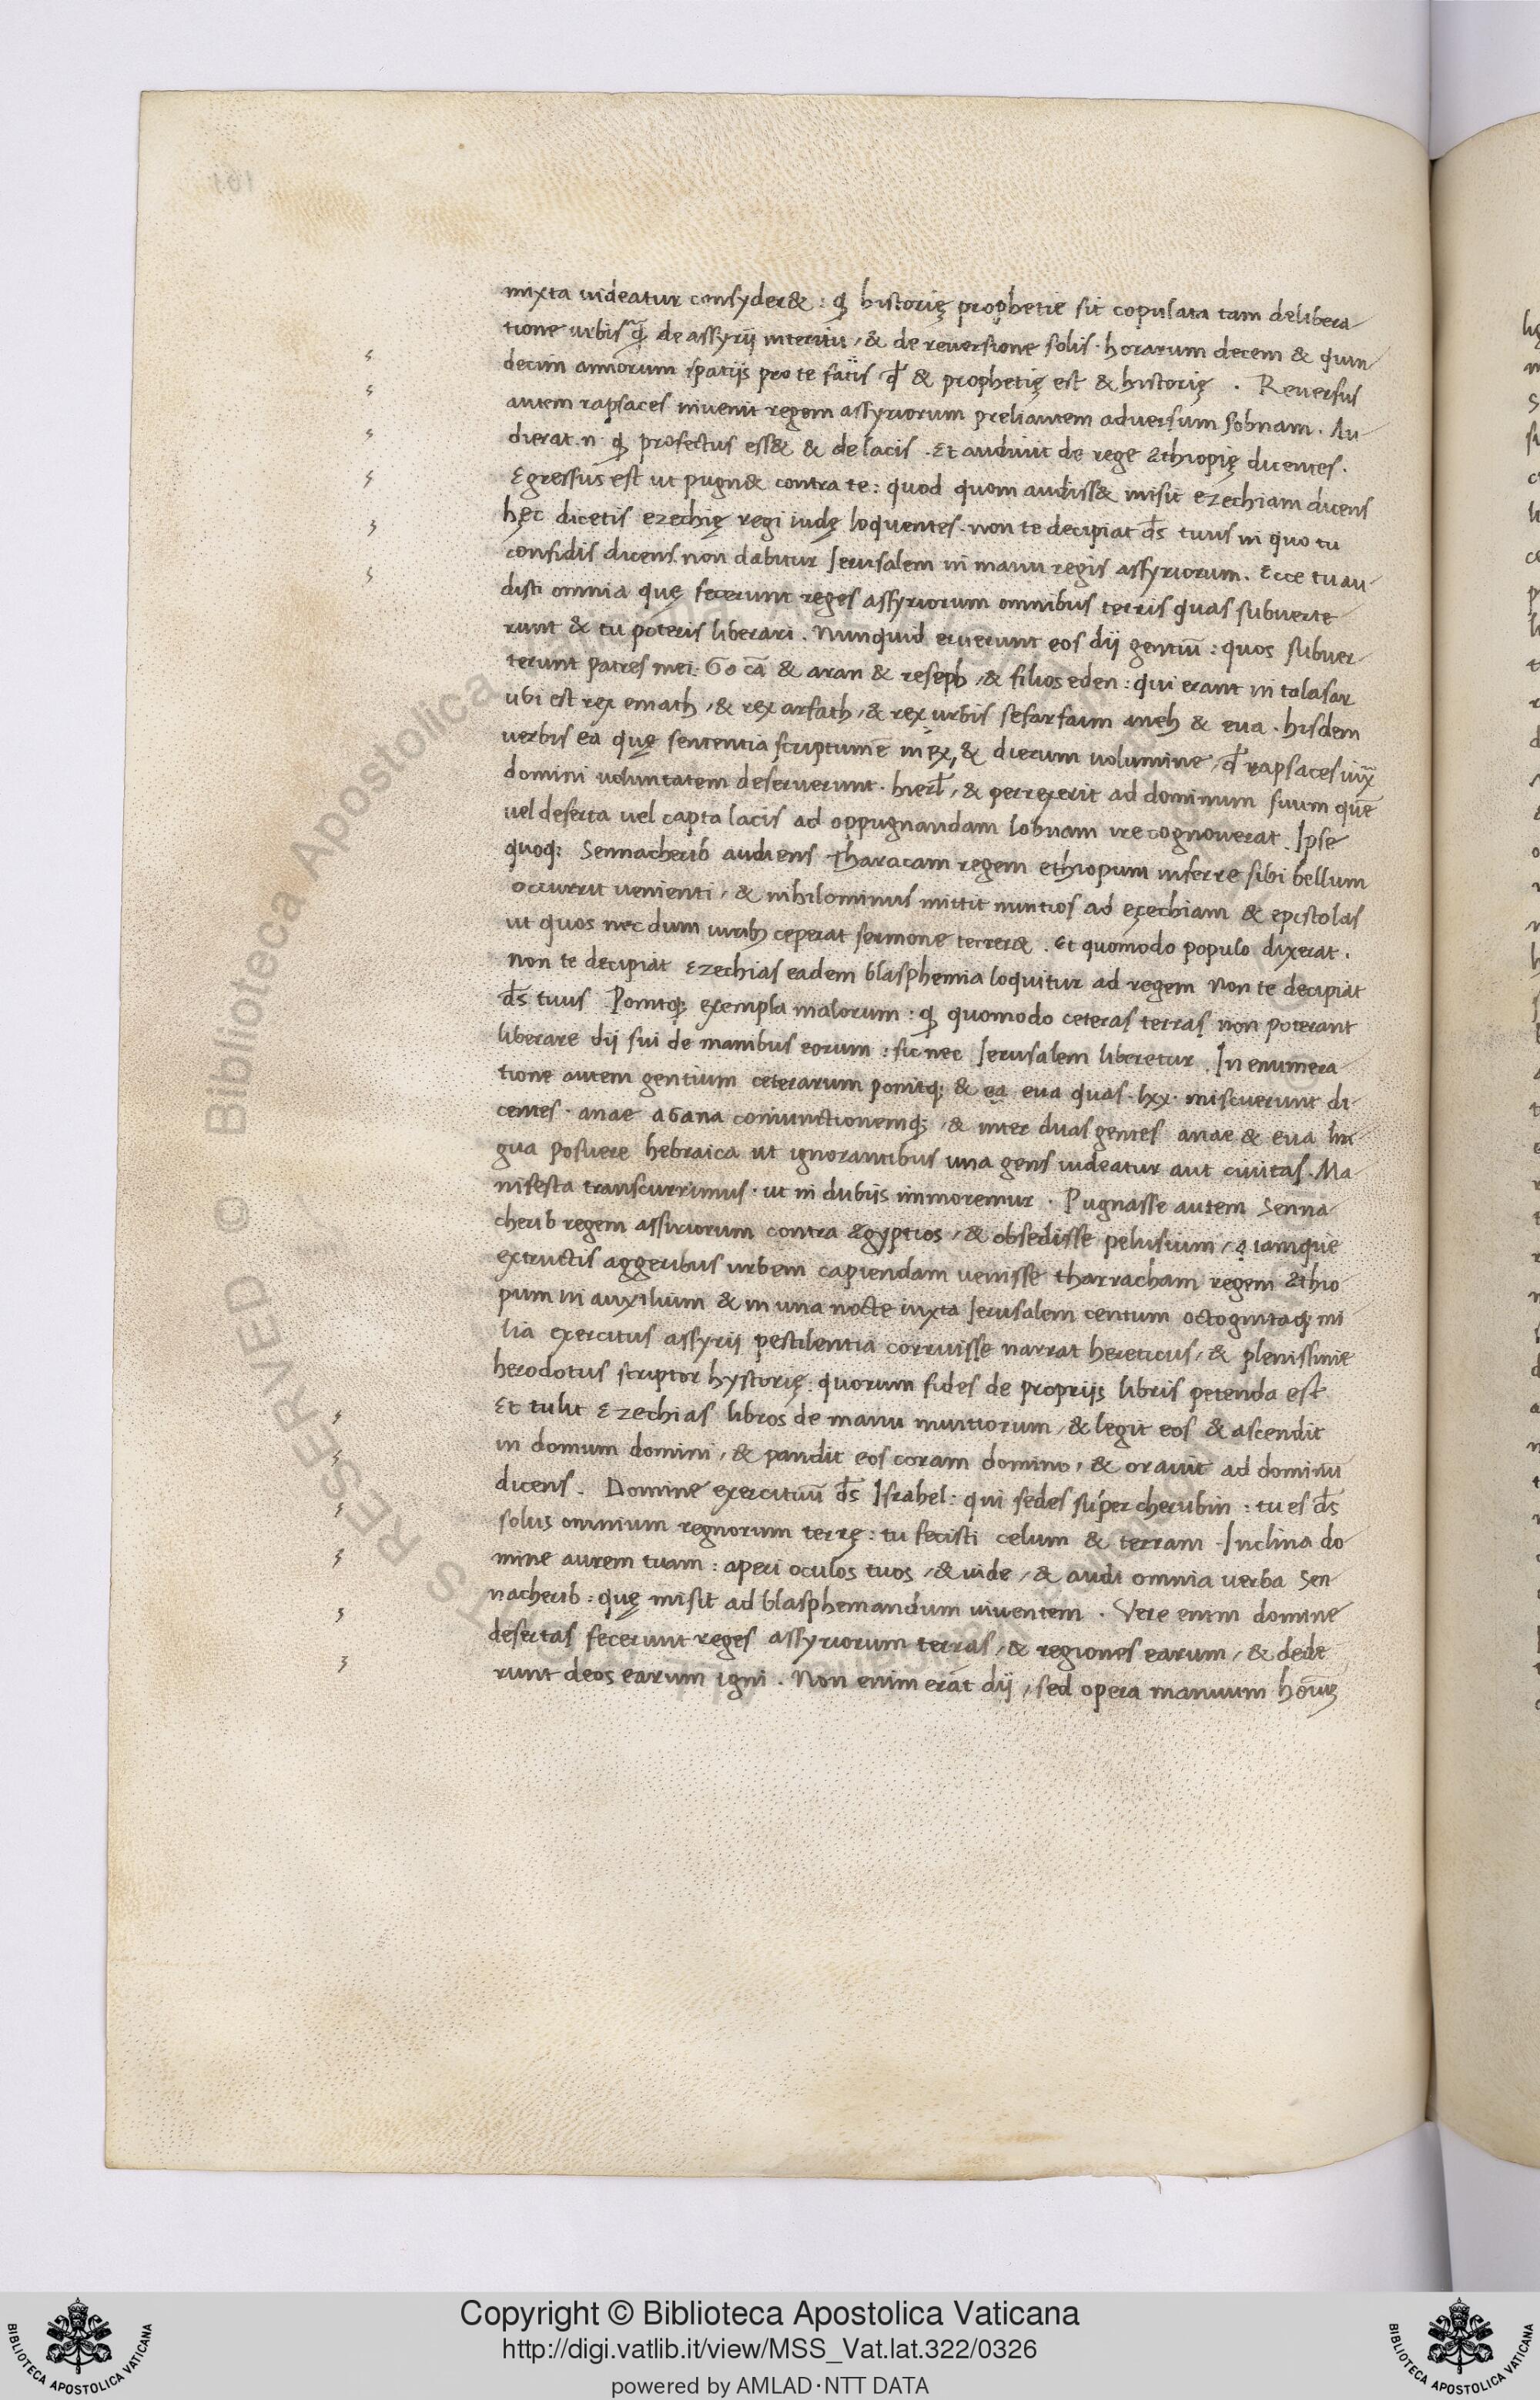 mixta uideatur consyder& : ꝙ historię prophetie sit copulata tam delibera-
tione urbis q̃ de assyrij interitu, & de reuersione solis. horarum decem & quin-
decim annorum spatijs prote fatis, qđ & prophetię est & historię . Reuersus
autem rapsaces inuenit regem assyriorum preliantem aduersum sobnam. Au-
dierat .n. ꝙ profectus ess& & de lacis . Et audiuit de rege æthiopię dicentes.
Egressus est ut pugn& contra te : quod quom audiss& misit ezechiam dicens
hęc dicetis ezechię regi iudę loquentes. non te decipiat d̅s tuus in quo tu
confidis dicens. non dabitur Jerusalem in manu regis assyriorum. Ecce tu au-
disti omnia quę fecerunt reges assyriorum omnibus terris quas subuerte-
runt & tu poteris liberari. Nunquid eruerunt eos dij gentiū : quos subuer-
terunt patres mei: Go cā & aran & reseph, & filios eden : qui erant in talasar
ubi est rex emath, & rex arfath, & rex urbis sefarfaim aneh & eua . hisdem
verbis ea quę sententia scriptum ē in & dierum volumine, qđ rapsaces
domini voluntatem deseruerunt. & perrexerit ad dominum suum quē
uel deserta uel capta lacis ad oppugnandam lobnam ire cognouerat. Ipse
quoq; Sennacherib audiens Tharacam regem ethiopum inferre sibi bellum
occurrit uenienti, & nihilominus mittit nuntios ad ezechiam & epistolas
ut quos nec dum uiribꝫ ceperat sermone terrer& . Et quomodo populo dixerat.
non te decipiat Ezechias eadem blasphemia loquitur ad regem Non te decipiat
d̅s tuus Ponitq; exempla malorum : ꝙ quomodo ceteras terras non poterant
liberare dij sui de manibus eorum : sic nec Jerusalem liberetur. In enumera-
tione autem gentium ceterarum ponitq; & ea eua quas .lxx. miscuerunt di-
centes. anae aGana coniunctionemq; , & inter duas gentes anae & eua lin-
gua posuere hebraica ut ignorantibus una gens uideatur aut ciuitas. Ma-
nifesta transcurrimus. ut in dubijs inmoremur . Pugnasse autem Senna-
cherib regem assiriorum contra ægyptios, & obsedisse pelusium, iamque
extructis aggeribus urbem capiendam uenisse tharracham regem æthio-
pum in auxilium & in una nocte iuxta Jerusalem centum octogintaq; mi-
lia exercitus assyrij pestilentia corruisse narrat hereticus, & plenissime
herodotus scriptor hystorię. quorum fides de proprijs libris petenda est
Et tulit Ezechias libros de manu nuntiorum, & legit eos & ascendit
in domum domini, & pandit eos coram domino, & orauit ad dominū
dicens . Domine exercituū d̅s Israhel : qui sedes super cherubin : tu es d̅s
solus omnium regnorum terrę : tu fecisti celum & terram . Inclina do-
mine aurem tuam : aperi oculos tuos, & uide, & audi omnia verba Sen-
nacherib : quę misit ad blasphemandum uiuentem . Vere enim domine
desertas fecerunt reges assyriorum terras, & regiones earum, & dede-
runt deos earum igni . Non enim erāt dij, sed opera manuum
Copyright © Biblioteca Apostolica Vaticana
http://digi.vatlib.it/view/MSS_Vat.lat.322/0326
powered by AMLAD·NTT DATA